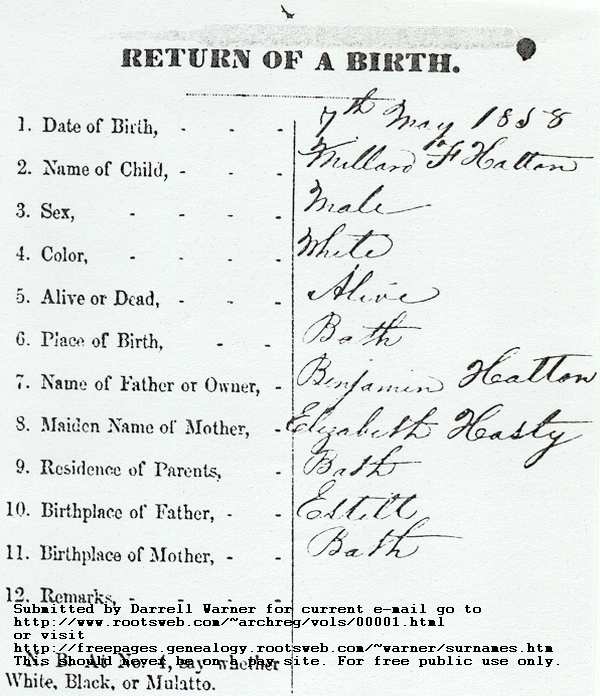 RETURN OF A BIRTH.
1. Date of Birth, - - - 7th May 1858
2. Name of Child, - - - Millard F Hatton
3. Sex, - - - - Male
4. Color, - - - - White
5. Alive or Dead, - - - Alive
6. Place of Birth, - - Bath
7. Name of Father or Owner, - Benjamin Hatton
8. Maiden Name of Mother, - Elizabeth Hasty
9. Residence of Parents, - Bath
10. Birthplace of Father, - - Estill
11. Birthplace of Mother, - - Bath
12. Remarks, - - - -
Submitted by Darrell Warner for current e-mail go to
http://www.rootsweb.com/~archreg/vols/00001.html
or visit
http://freepages.genealogy.rootsweb.com/~warner/surnames.htm
This Should Never be on a pay site. For free public use only.
N. B. At No. 4, say whether
White, Black, or Mulatto.